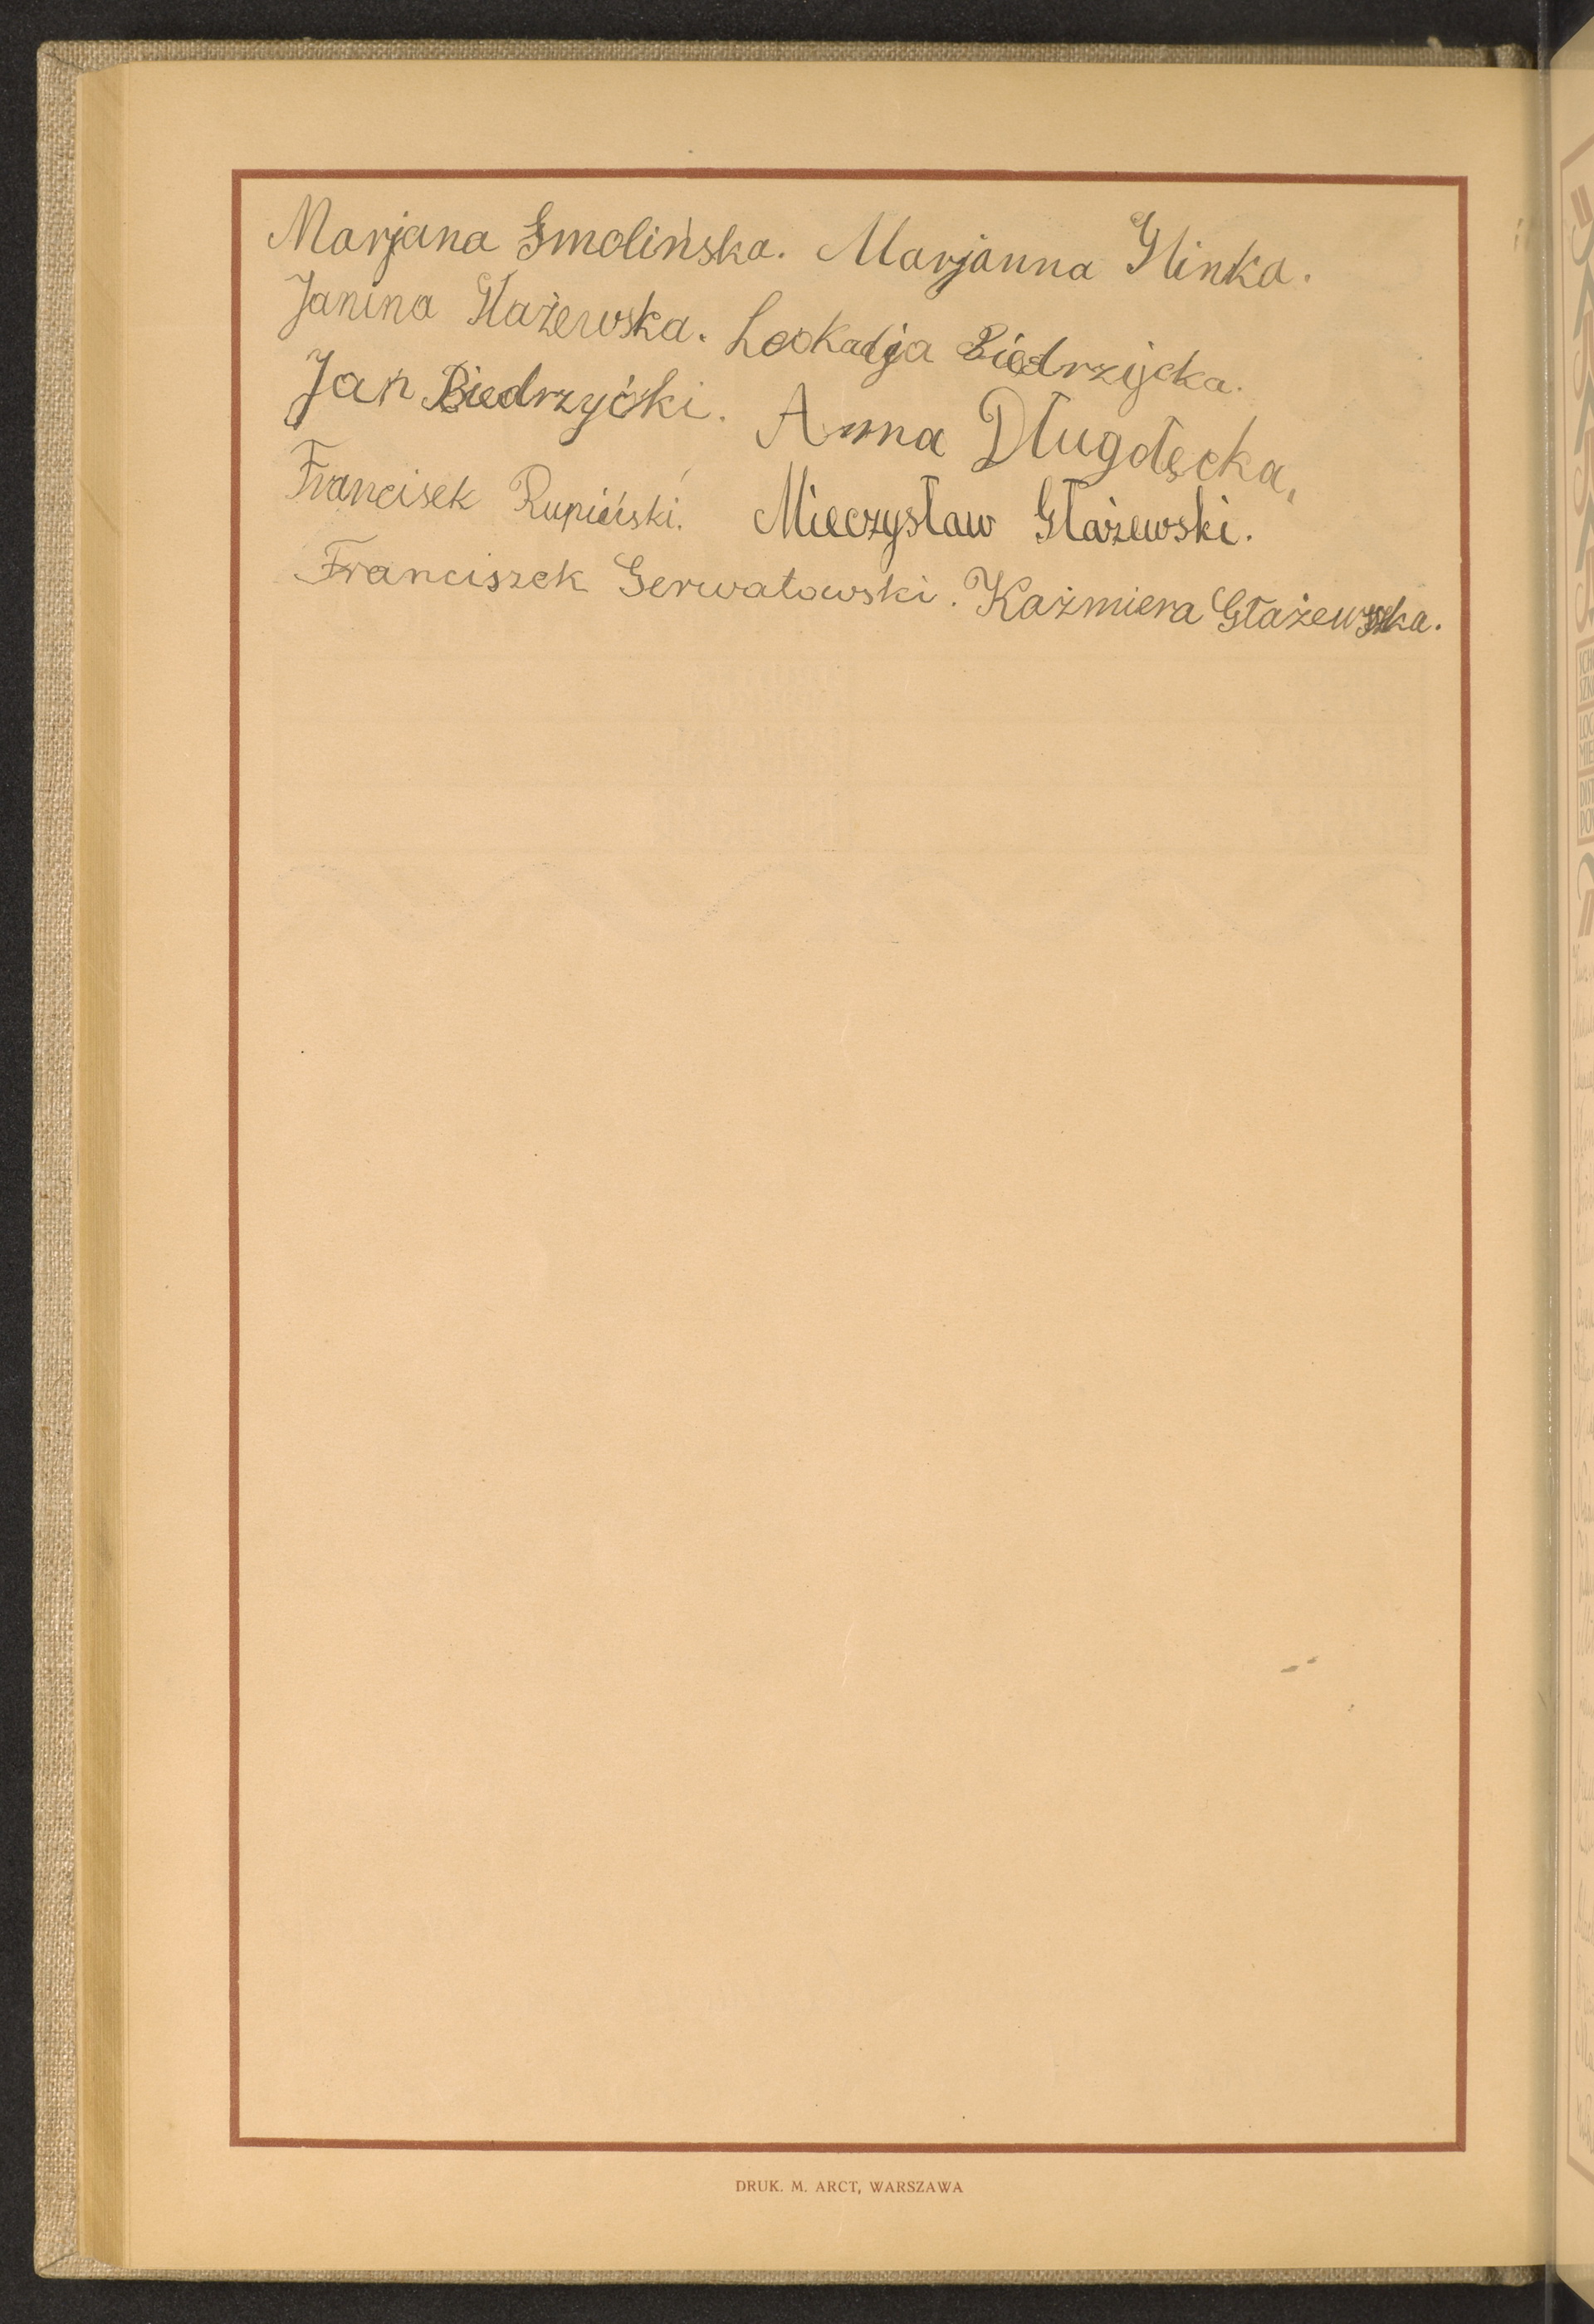 Marjana Smolińska. Marjanna Glinka.
Janina Głażewska. Leokadja Biedrzycka.
Jan Biedrzycki. Anna Długołęcka,
Francisek Rupiński. Mieczysław Głażewski.
Franciszek Gerwatowski. Kaźmiera Głażewska.
DRUK. M. ARCT, WARSZAWA